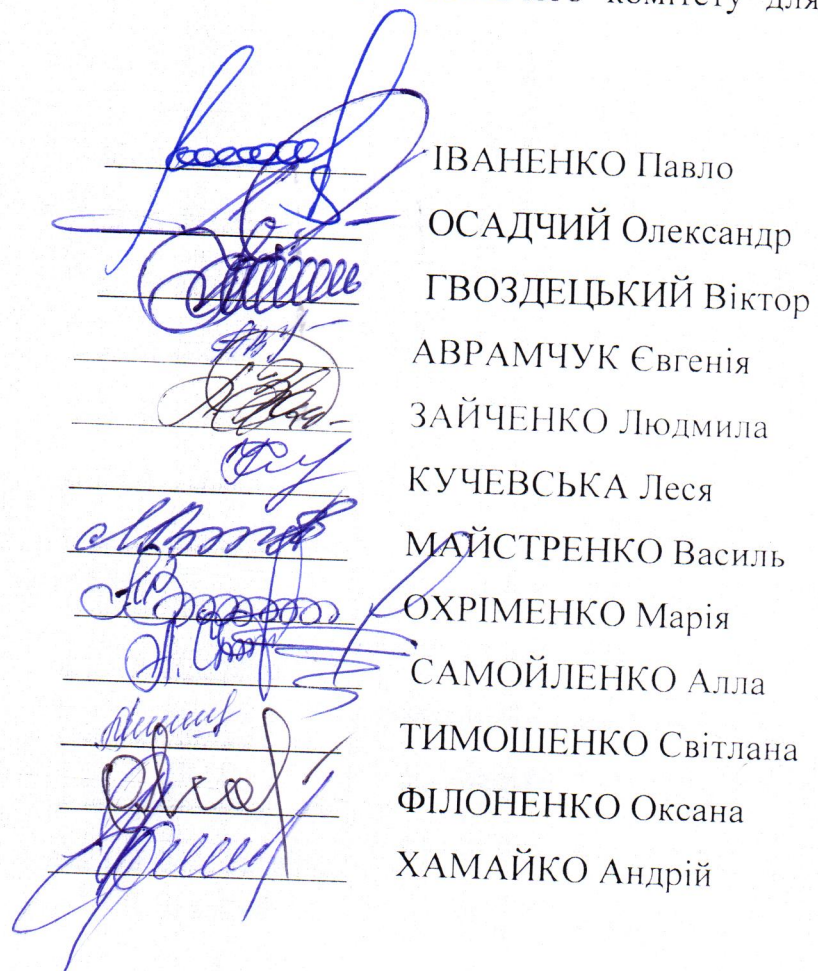 комітету для
ІВАНЕНКО Павло
ОСАДЧИЙ Олександр
ГВОЗДЕЦЬКИЙ Віктор
АВРАМЧУК Євгенія
ЗАЙЧЕНКО Людмила
КУЧЕВСЬКА Леся
МАЙСТРЕНКО Василь
ОХРІМЕНКО Марія
САМОЙЛЕНКО Алла
ТИМОШЕНКО Світлана
ФІЛОНЕНКО Оксана
ХАМАЙКО Андрій